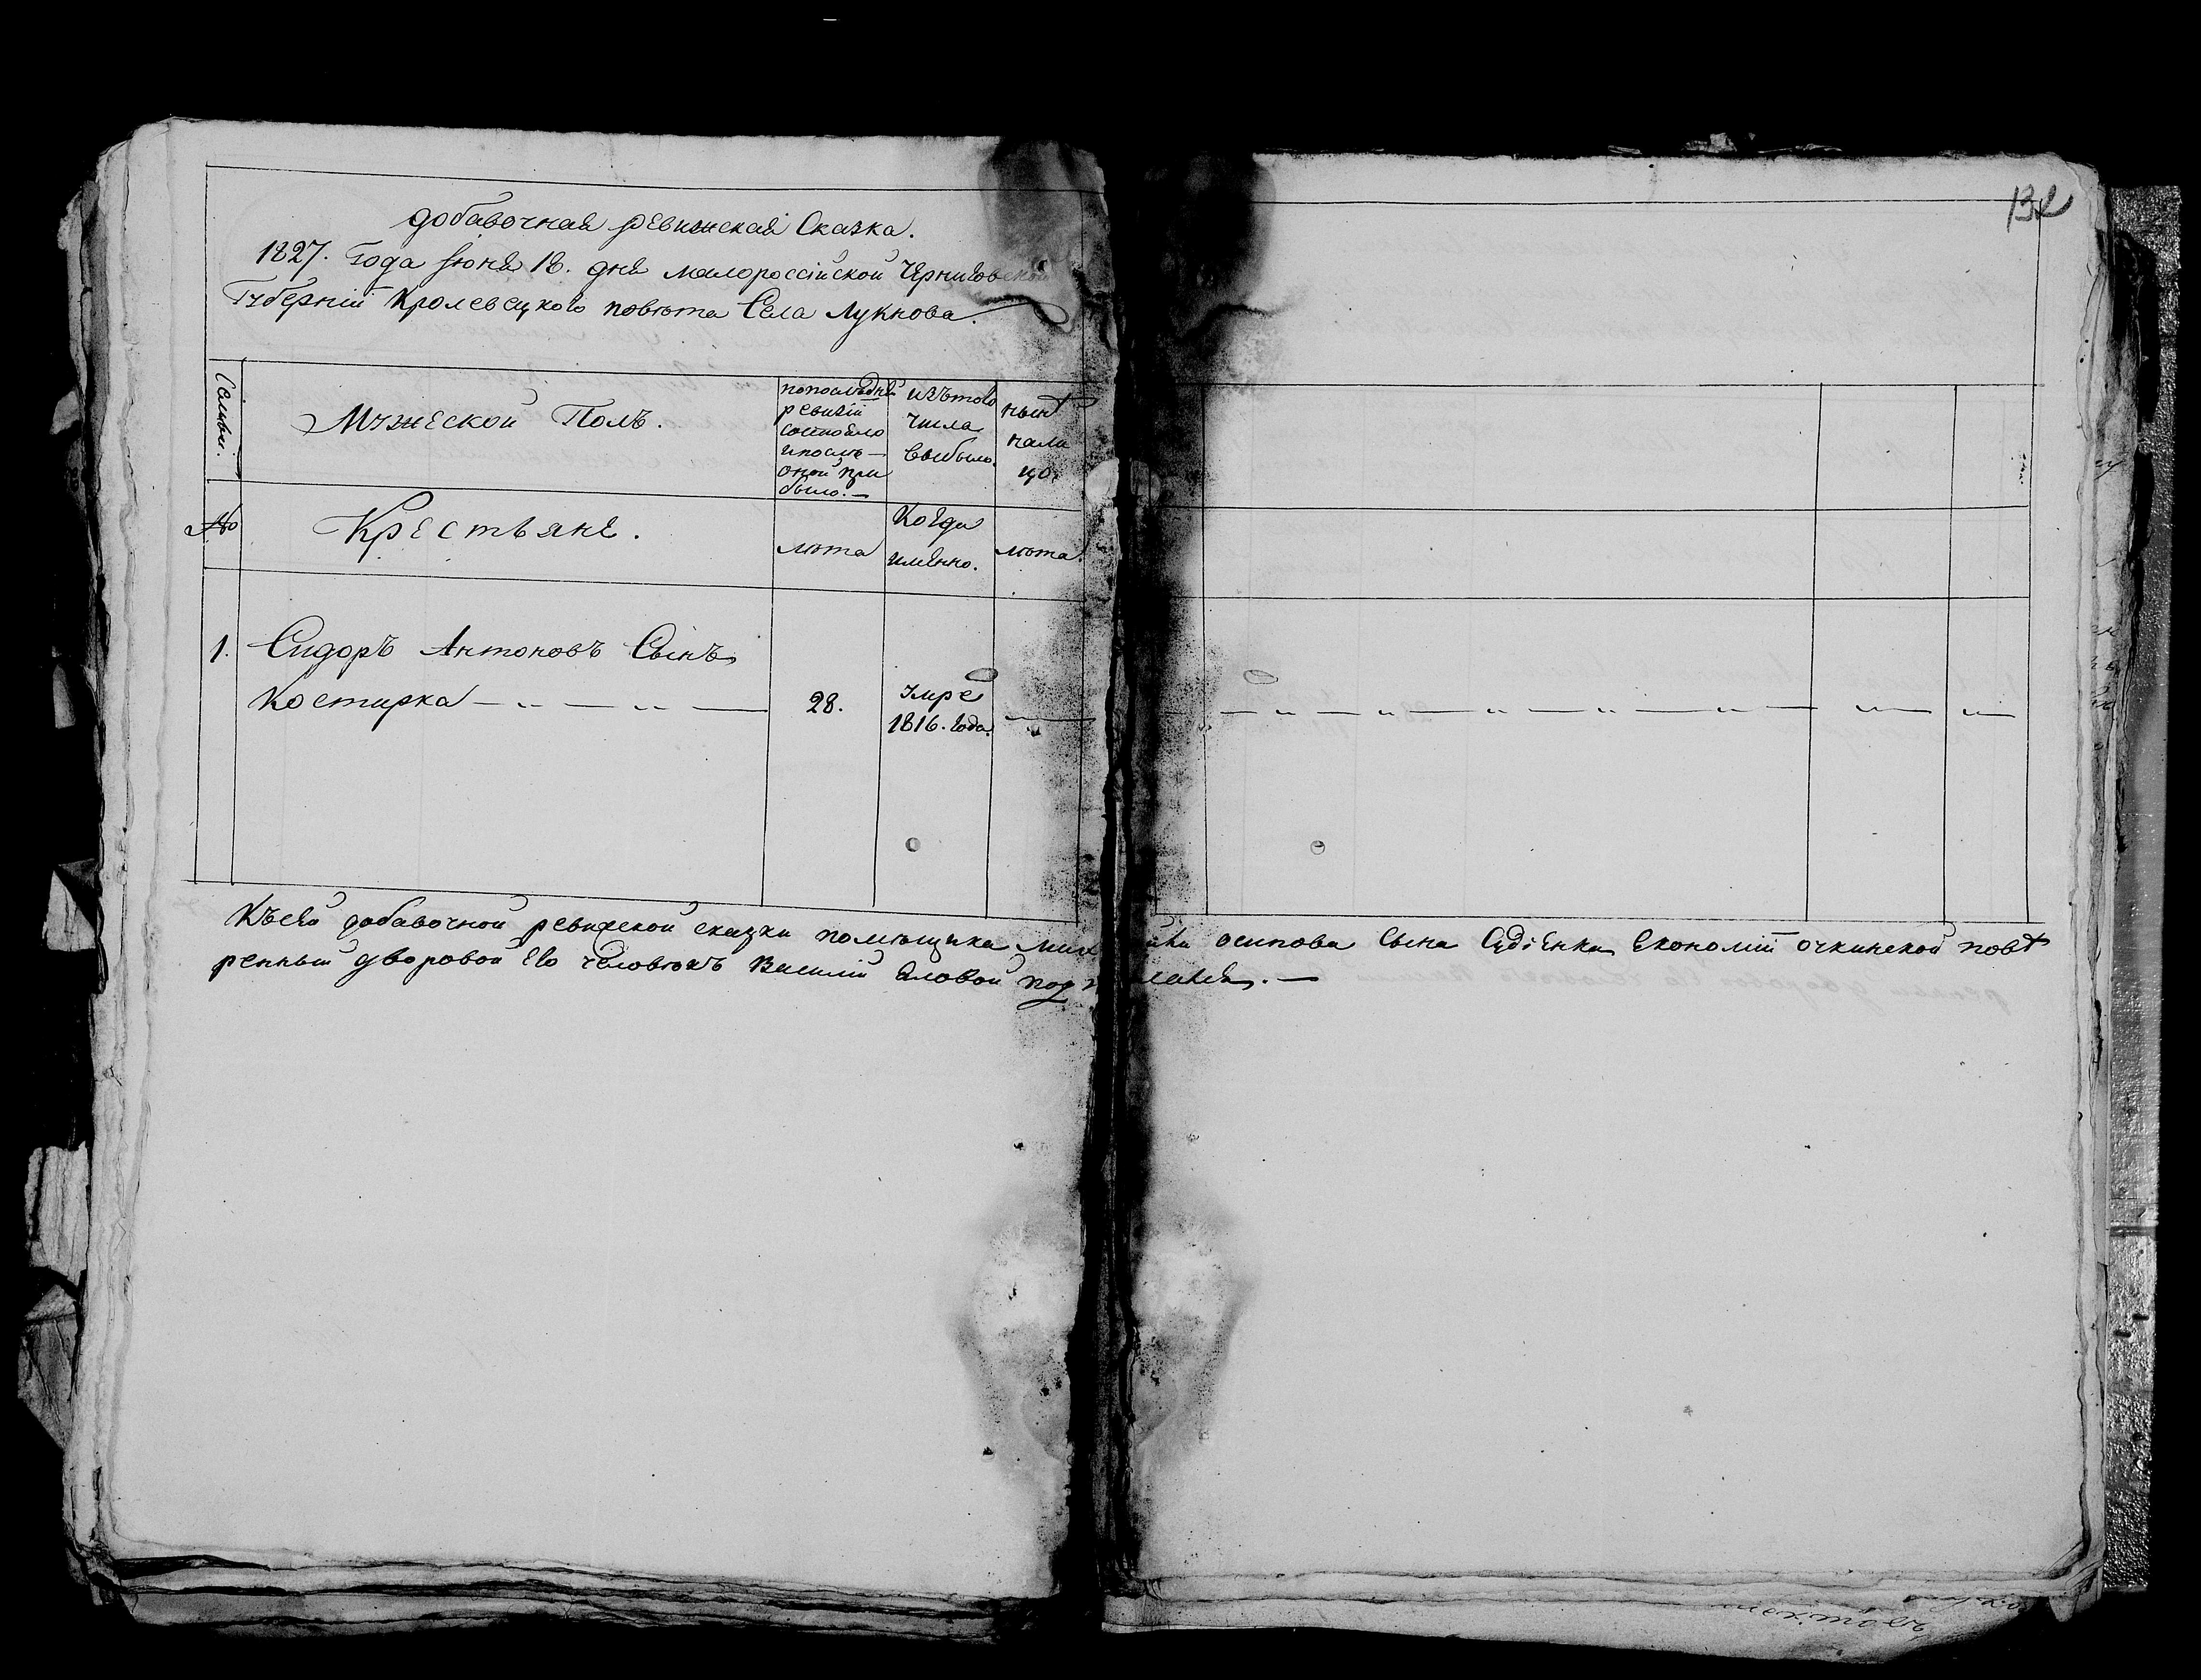 132
добавочная ревижская Сказка.
1827. Года Іюня 18. дня малороссійской Чернигов
Губерніи Кролевецкого повѣта Села Лукнова.
Семьи.
Мужеской Полъ.
попослѣдней
ревизіи
состояло
ипослѣ
оной при
было.
изътого
числа
выбыло.
нынѣ
нали
цо.
№
Крестьяне.
лѣта
Когда
именно.
лѣта.
1.
Сидоръ Антоновъ Сынъ
Костирка
28.
Умре
1816. Года.
Късей добавочной ревижской сказки помѣщика Мих осипова Сына Судіенка Економіи очкинской повѣ
ренный дворовой Его человѣкъ Василій под